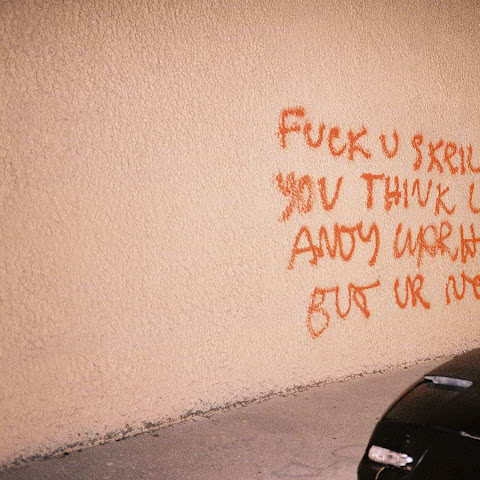 FUCK U SKRIL
YOU THINK U
ANDY WARH
BUT UR NO